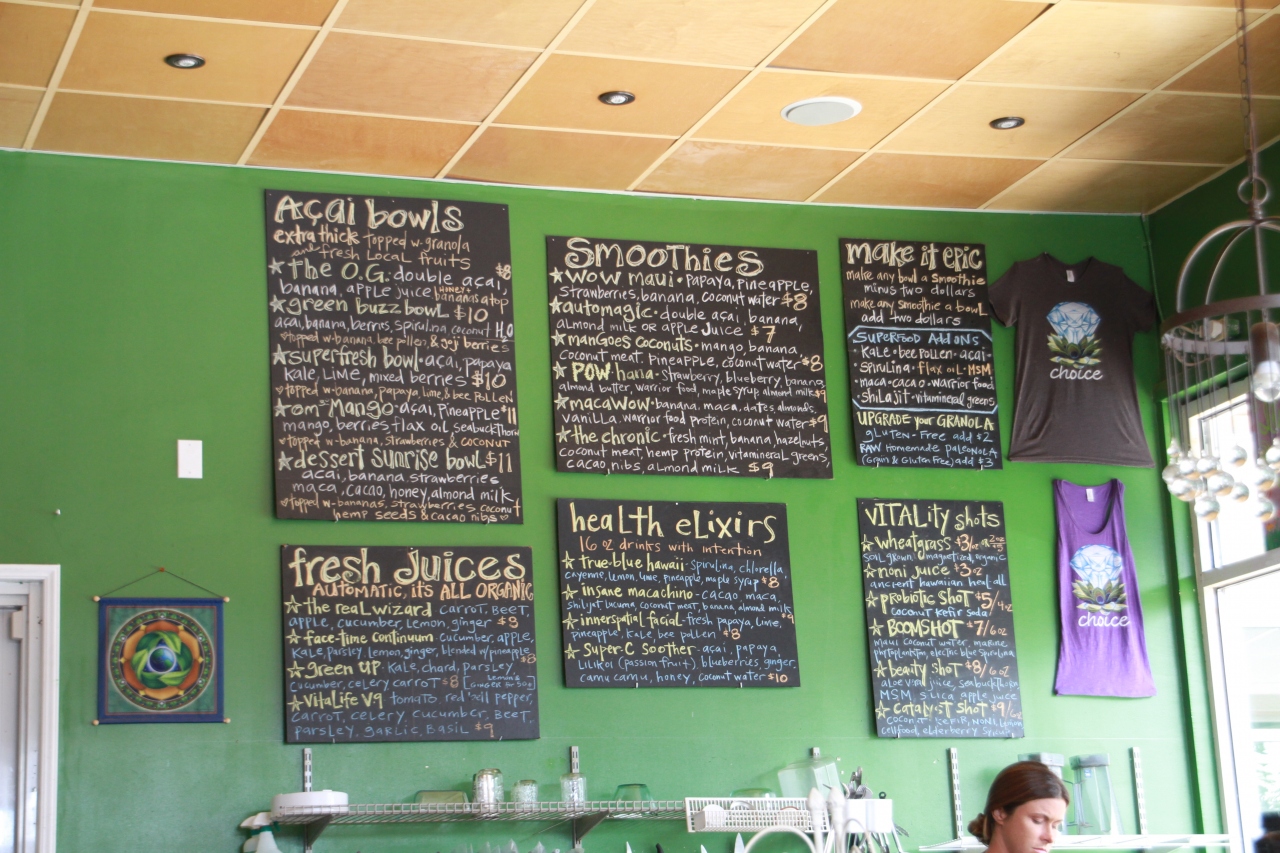 Açai bowls
extra thick topped w-granola
and fresh Local fruits
the O.G: double açai, $8
banana, apple juice honey+ bananas atop
green buzz bowl $10
açai, banana, berries, spirulina, coconut H2O
topped w-banana, bee pollen, & goji berries
superfresh bowl • açai, papaya
kale, LIME, mixed berries $10
topped w-banana, papaya, lime, & bee pollen
om Mango • açaí, PINEAPPLE $11
mango, berries, flax oil, seabuckthorn
topped w-banana, strawberries & coconut
dessert sunrise bowl $11
açai, banana, strawberries
maca, cacao, honey, almond milk
topped w-bananas, strawberries, coconut
hemp seeds & cacao nibs
Smoothies
WOW maui • papaya, pineapple,
strawberries, banana, coconut water $8
automagic • double açai, banana,
almond milk or apple juice $7
mangoes coconuts • mango, banana,
coconut meat, Pineapple, coconut water $8
POW hana • strawberry, blueberry, banana,
almond butter, warrior food, maple syrup, almond milk $9
macaWOW • banana, maca, dates, almonds,
vanilla, warrior food protein, coconut water $9
the chronic • fresh mint, banana, hazelnuts,
coconut meat, hemp protein, vitamineral greens,
cacao, nibs, almond milk $9
make it epic
make any bowl a Smoothie
minus two dollars
make any smoothie a bowl
add two dollars
Superfood Add ONS
• Kale • bee pollen • açai •
• spirulina • flax oil • MSM
• maca • cacao • warrior food
• shilajit • vitamineral greens
UPGRADE your GRANOLA
gluten-free add $2
RAW Homemade paleoNOLA
(Grain & Gluten Free) add $3
choice
fresh juices
AUTOMATIC, it's ALL ORGANIC
the real wizard carrot, beet,
apple, cucumber, lemon, ginger $9
face-time continuum cucumber, apple,
kale, parsley, lemon, ginger, blended w/pineapple $8
green up kale, chard, parsley
cucumber, celery carrot $8 [Lemon & Ginger for 50¢]
VitaLife V.9 tomato, red bell pepper,
carrot, celery, cucumber, beet,
parsley, garlic, basil $9
health elixirs
16 oz drinks with intention
true-blue hawaii • spirulina, chlorella,
cayenne, lemon, lime, pineapple, maple syrup $8
insane macachino • cacao, maca,
shilajit, lucuma, coconut meat, banana, almond milk $9
innerspatial facial • fresh papaya, lime,
pineapple, kale, bee pollen $8
Super-C Soother • acai, papaya,
Lilikoi (passion fruit), blueberries, ginger,
camu camu, honey, coconut water $10
VITALity shots
wheatgrass $3/1oz or 2oz $5
soil grown, magnetized, organic
noni juice $3 oz
ancient hawaiian heal all
probiotic shot $5/4oz
coconut kefir soda
BOOMSHOT $7/6oz
maui coconut water, marine
phytoplankton, electric blue spirulina
beauty shot $8/6oz
aloe vera juice, seabuckthorn
MSM, silica, apple juice
catalyst shot $9/6oz
coconut kefir, noni, lemon
cellfood, elderberry syrup
choice